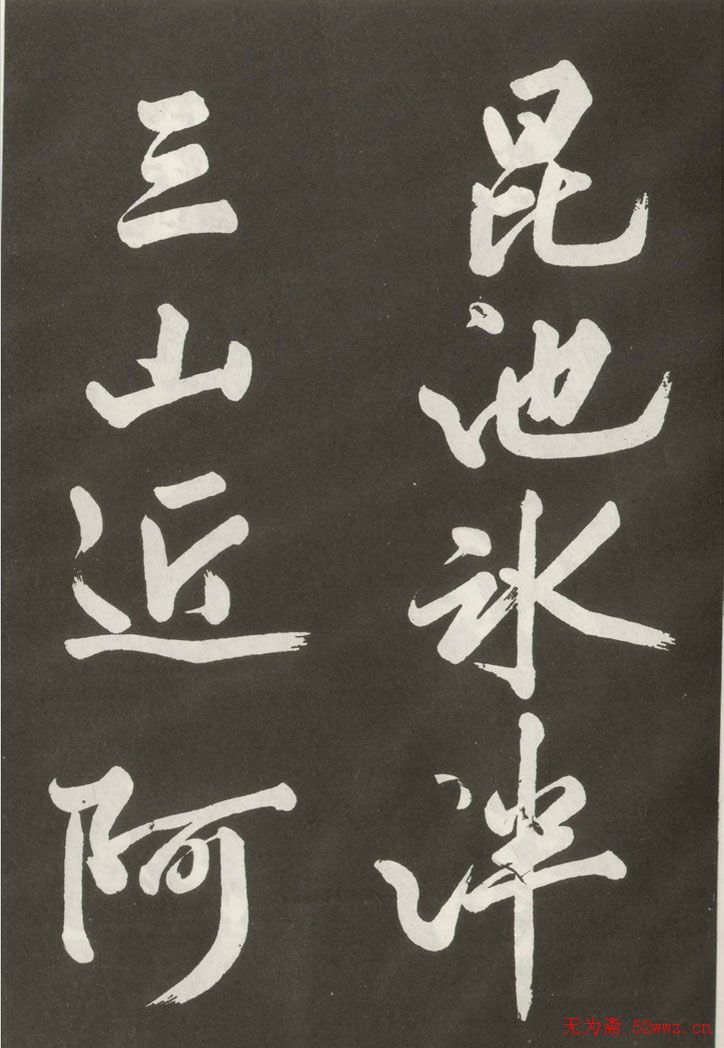 昆池冰泮
三山近阿
无为斋 52wwz.cn